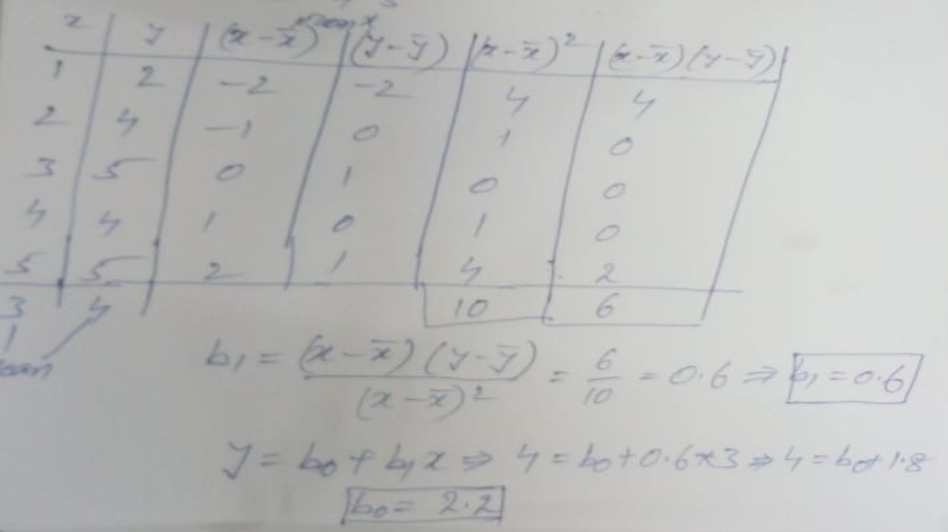 x y (x-x̄) (y-ȳ) (x-x̄)² (x-x̄)(y-ȳ)
1 2 -2 -2 4 4
2 4 -1 0 1 0
3 5 0 1 0 0
4 4 1 0 1 0
5 5 2 1 4 2
3 4 10 6
b₁ = (x-x̄)(y-ȳ) / (x-x̄)² = 6/10 = 0.6 ⇒ b₁ = 0.6
y = b₀ + b₁x ⇒ 4 = b₀ + 0.6×3 ⇒ 4 = b₀+1.8
b₀ = 2.2